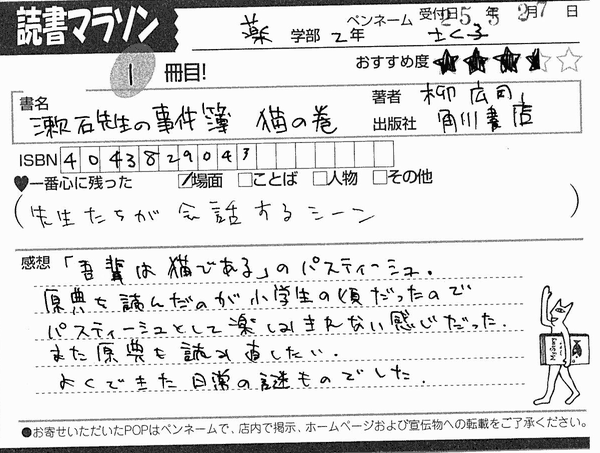 読書マラソン
薬 学部 2年 ペンネーム さくる 受付日 25年 3月7日
1 冊目! おすすめ度
書名 漱石先生の事件簿 猫の巻
著者 柳 広司
出版社 角川書店
ISBN 4043829043
♥一番心に残った ☑場面 □ことば □人物 □その他
(先生たちが会話するシーン)
感想 「吾輩は猫である」のパスティーシュ.
原典を読んだのが小学生の頃だったので
パスティーシュとして楽しみきれない感じだった.
また原典を読み直したい.
よくできた日常の謎ものでした.
●お寄せいただいたPOPはペンネームで、店内で掲示、ホームページおよび宣伝物への転載をご了承ください。